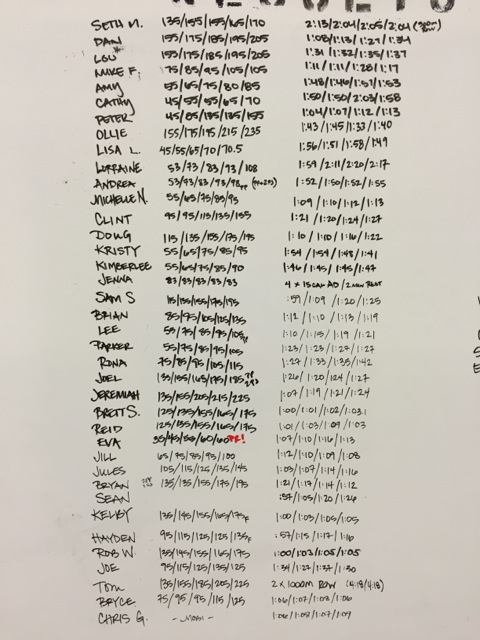 SETH M. 135/155/155/165/170 2:13/2:04/2:05/2:04
DAN 155/175/185/195/205 1:08/1:13/1:27/1:34
LOU 155/175/185/195/205 1:31/1:32/1:35/1:37
MIKE F. 75/85/95/105/105 1:11/1:11/1:28/1:17
AMY 55/65/75/80/85 1:48/1:46/1:51/1:53
CATHY 45/55/55/65/70 1:50/1:50/2:03/1:58
PETER 1:04/1:07/1:12/1:13
OLLIE 155/175/195/215/235 1:43/1:45/1:37/1:40
LISA L. 45/55/65/70/70.5 1:56/1:51/1:58/1:49
LORRAINE 53/73/83/93/108 1:59/2:11/2:20/2:17
ANDREA 53/73/83/93/98 1:52/1:50/1:52/1:55
MICHELLE N. 55/65/75/85/95 1:09/1:10/1:12/1:13
CLINT 95/95/115/135/155 1:21/1:20/1:24/1:27
DOUG 115/135/155/175/195 1:10/1:10/1:16/1:22
KRISTY 55/65/75/85/95 1:54/1:54/1:48/1:41
KIMBERLEE 55/65/75/85/90 1:46/1:45/1:45/1:47
JENNA 83/83/83/83/83 4 x 15 CAL AD / 2 MIN REST
SAM S 115/135/155/175/195 :59/1:09/1:20/1:25
BRIAN 85/95/105/125/135 1:12/1:10/1:13/1:19
LEE 55/75/85/95/105 1:10/1:15/1:19/1:21
PARKER 55/75/85/95/105 1:23/1:23/1:27/1:27
RONA 75/85/85/105/115 1:27/1:33/1:35/1:42
JOEL 135/155/165/175/185 1:26/1:20/1:24/1:27
JEREMIAH 135/155/205/215/225 1:07/1:19/1:21/1:24
BRETT S. 125/135/155/165/175 1:00/1:01/1:02/1:03
REID 125/135/155/165/175 1:01/1:03/1:09/1:03
EVA 35/45/55/60/60 PR! 1:07/1:10/1:16/1:13
JILL 65/75/85/95/100 1:12/1:10/1:09/1:08
JULES 105/115/125/135/145 1:03/1:07/1:14/1:16
BRYAN 135/135/155/175/195 1:21/1:17/1:14/1:12
SEAN :57/1:05/1:20/1:26
KELBY 135/145/155/165/175F 1:00/1:03/1:05/1:05
HAYDEN 95/115/125/125/135F :57/1:15/1:17/1:16
ROB W. 135/145/155/165/175 1:00/1:03/1:05/1:05
JOE 95/115/125/135/125 1:34/1:27/1:37/1:30
TOM 135/155/185/205/225 2 x 1000M ROW (4:18/4:18)
BRYCE 75/95/95/115/125 1:06/1:07/1:03/1:06
CHRIS G. - MOBI - 1:06/1:08/1:07/1:09